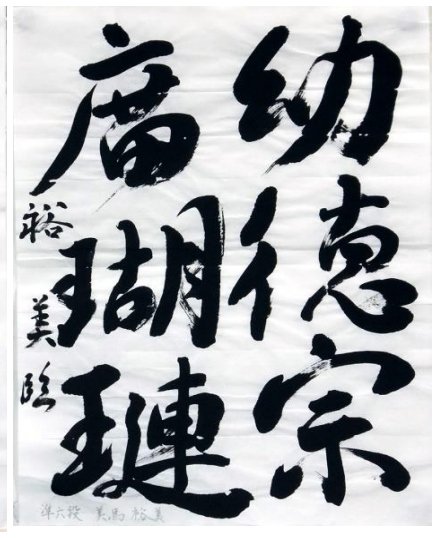 幼徳宗
廣瑚璉
裕美臨
準六段 美馬 裕美